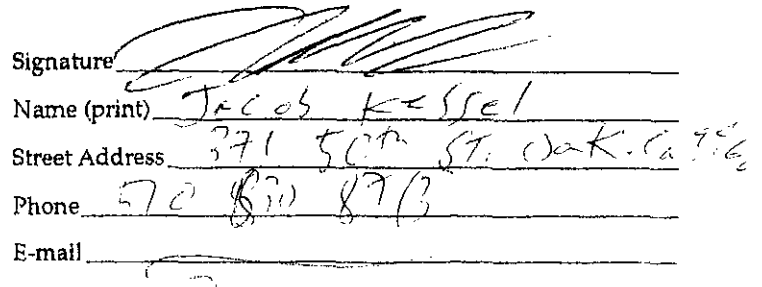 Signature
Name (print) Jacob Kessel
Street Address 371 50th St. Oak. Ca
Phone 510
E-mail